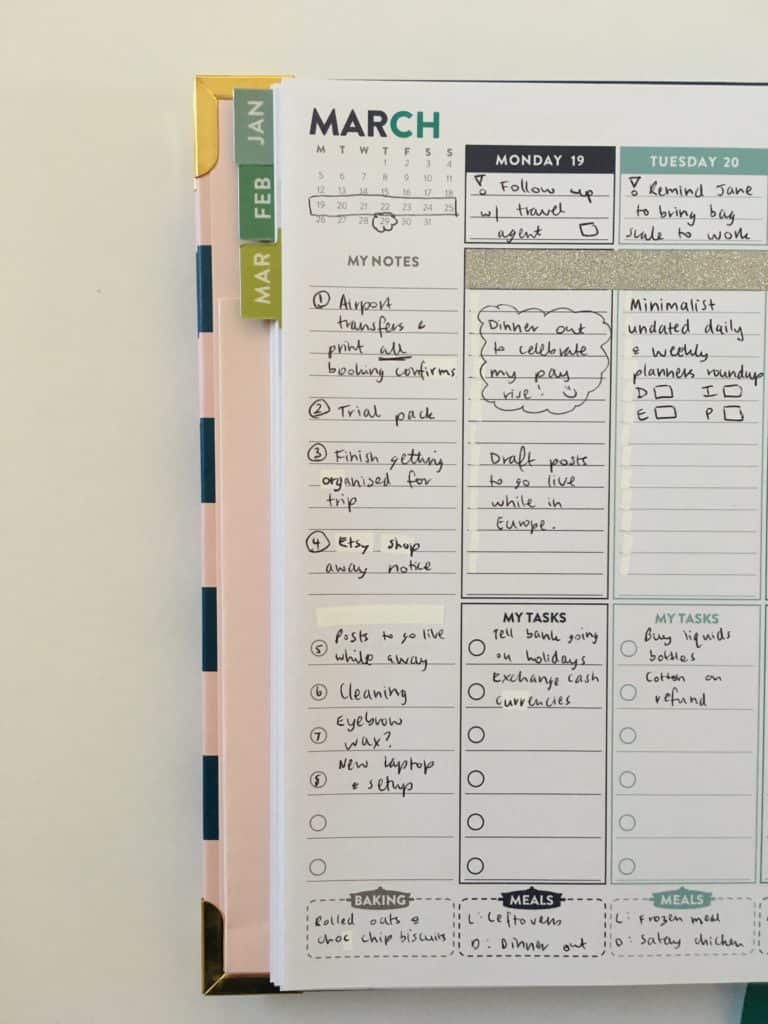 JAN
FEB
MAR
MARCH
M T W T F S S
1 2 3 4
5 6 7 8 9 10 11
12 13 14 15 16 17 18
19 20 21 22 23 24 25
26 27 28 29 30 31
MY NOTES
① Airport
transfers &
print all
booking confirms
② Trial pack
③ Finish getting
organised for
trip
④ Etsy shop
away notice
⑤ Posts to go live
while away
⑥ Cleaning
⑦ Eyebrow
wax?
⑧ New laptop
& setup
BAKING
Rolled oats &
choc chip biscuits
MONDAY 19
! Follow up
w/ travel
agent
Dinner out
to celebrate
my pay
rise!
Draft posts
to go live
while in
Europe.
MY TASKS
Tell bank going
on holidays
Exchange cash
currencies
MEALS
L: Leftovers
D: Dinner out
TUESDAY 20
! Remind Jane
to bring bag
scale to work
Minimalist
undated daily
& weekly
planners roundup
D I
E P
MY TASKS
Buy liquids
bottles
Cotton on
refund
MEALS
L: Frozen meal
D: Satay chicken